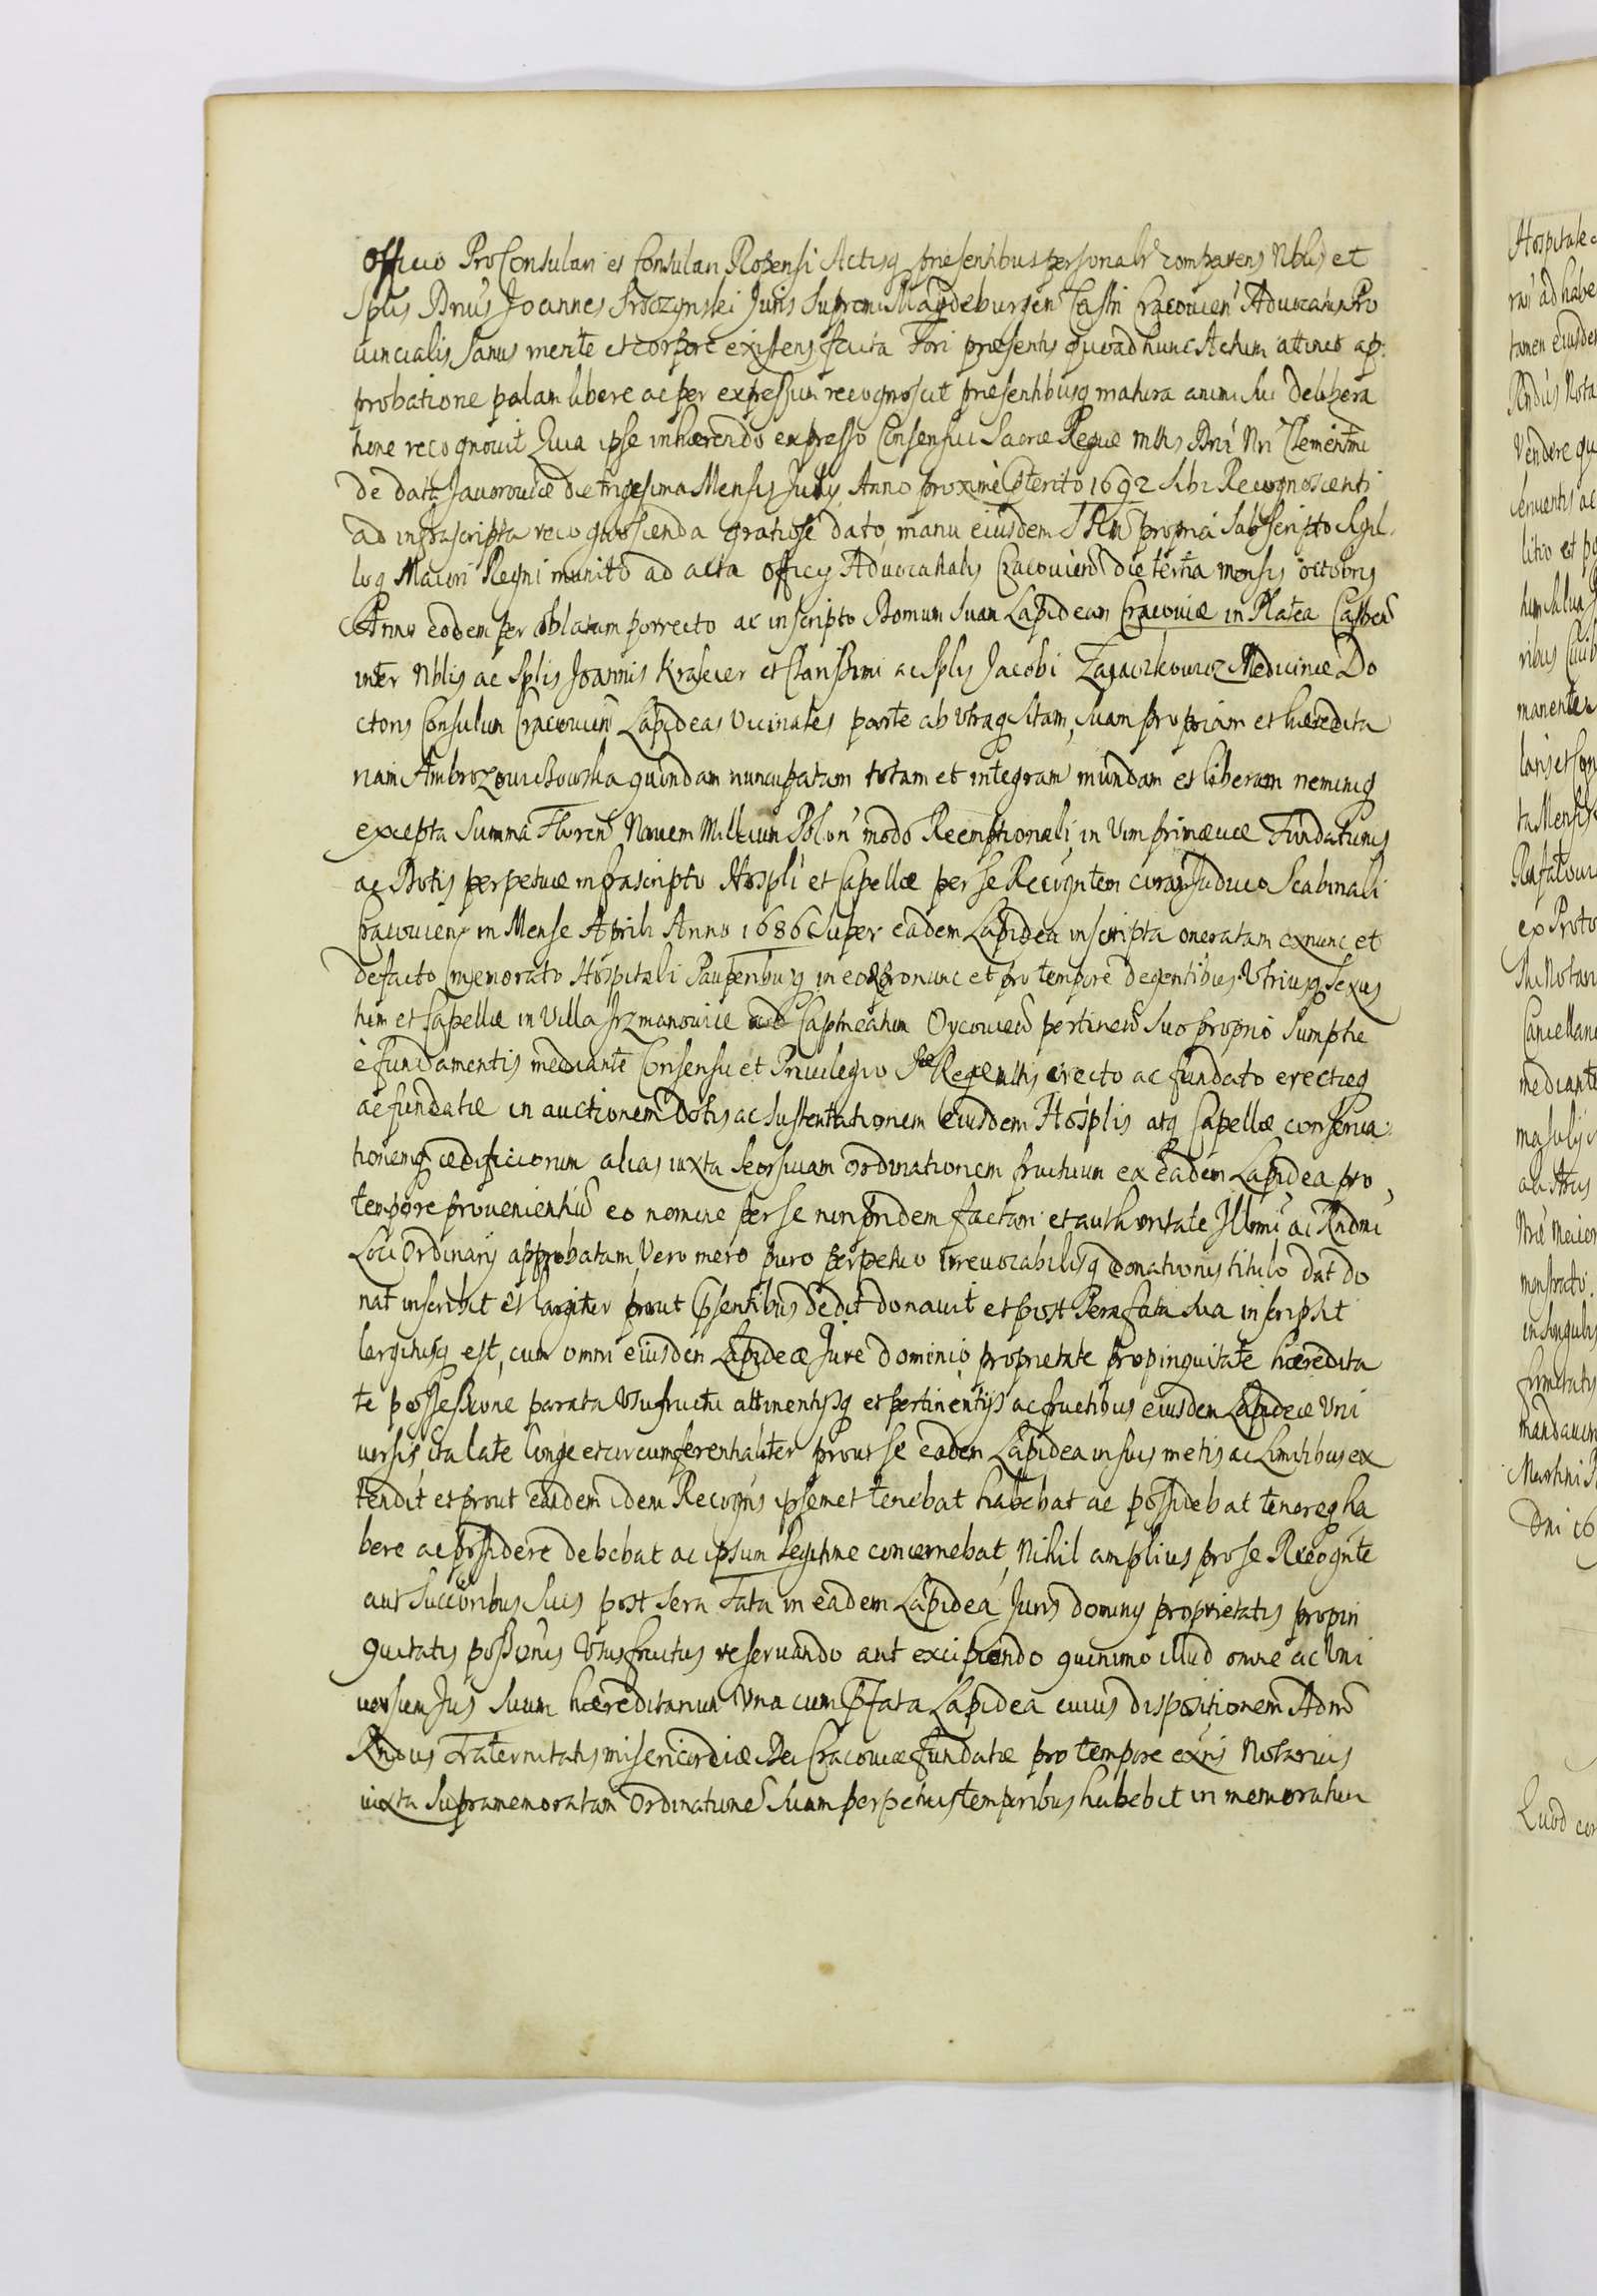 Officio ProConsulari et Consulari Actisq presentibus personalr comparens Nblis et
Splis Dnus Joannes Juris Supremi Magdeburgen Castri Cracovien Advocatus Pro
uincialis Sanus mente et corpore existens facta Fori presentis quoad hunc Actum attinet ap:
probatione palam libere ac per expressum recognoscit presentibusq matura animi sui delibera
tione recognovit Quia ipse inhærendo expresso Consensui Sacræ Regiæ Mttis Dni Nri Clementmi
de data Javoroviæ die trigesima Mensis July Anno proxime Pterito 1692 sibi Recognoscenti
ad infrascripta recognoscenda gratiose dato, manu eiusdem propria subscripto Sigil
loq Maiori Regni munito ad acta Officij Advocatialis Cracovien die tertia mensis octobris
Anno eodem per oblatam porrecto ac inscripto Domum suam Lapideam Cracoviæ in Platea
inter Nblis ac Splis Joannis Krauzer et Clarissimi ac Splis Jacobi Medicinæ Do
ctoris Consulum Cracovien Lapideas Vicinales parte ab Vtraq sitam, suam propriam et hæredita
riam quondam nuncupatam totam et integram mundam et liberam neminiq
excepta Summa Floren Novem Millium Polon modo Reemptionali in Vim primævæ Fundationis
ac Dotis perpetuæ infrascripto Hospli et Capellæ per se Recogntem coram Judicio Scabinali
Cracovien in Mense Aprili Anno 1686 super eadem Lapidea inscripta oneratam exnunc et
defacto memorato Hospitali Pauperibusq in eo pronunc et pro tempore degentibus Vtriusq Sexus
tum et Capellæ in Villa Jrzmanowice ad Capitneatum Oycovien pertinen suo proprio sumptu
è fundamentis mediante Consensu et Privilegio Sæ Regiæ Mttis erecto ac fundato erectæq
ac fundatæ in auctionem Dotis ac sustentationem eiusdem Hosplis atq Capellæ conserva:
tionemq ædificiorum alias iuxta seorsivam ordinationem fructuum ex eadem Lapidea pro
tempore provenientiu eo nomine per se non pridem factam et authoritate Jllmi ac Rndmi
Loci Ordinarij approbatam Vero mero puro perpetuo irrevocabilisq donationis titulo dat do
nat inscribit et largitur prout Psentibus dedit donavit et post sera fata sua inscripsit
largitusq est, cum omni eiusdem Lapideæ Jure dominio proprietate propinquitate hæredita
te possessione parata Vsufructu attinentijsq et pertinentijs ac fructibus eiusdem Lapideæ Vni
versis ita late longe et circumferentialiter prout se eadem Lapidea in suis metis ac Limitibus ex
tendit et prout eandem idem Recogns ipsemet tenebat habebat ac possidebat tenereq ha
bere ac possidere debebat ac ipsum legitime concernebat, Nihil amplius pro se Recognte
aut Succoribus suis post sera fata in eadem Lapidea Juris dominy proprietatis propin
quitatis possionis Vsusfructus reservando aut excipiendo quinimo illud omne ac Vni
versum Jus suum hæreditarium Vna cum Pfata Lapidea cuius dispositionem Adm
Rndus Fraternitatis misericordiæ Dei Cracoviæ fundatæ pro tempore exns Notarius
iuxta supramemoratam ordinatione suam perpetuis temporibus habebit in memoratum